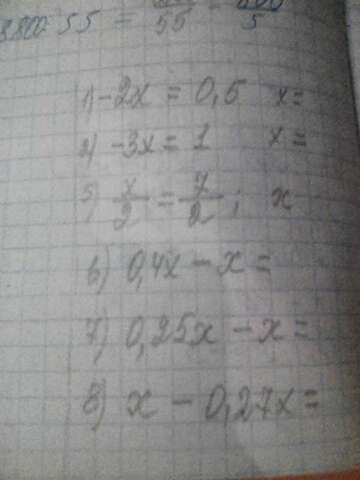 3800 : 55 = 55 = 5
1) -2x = 0,5 x =
2) -3x = 1 x =
5) x/2 = 7/2 ; x
6) 0,4x - x =
7) 0,25x - x =
8) x - 0,27x =